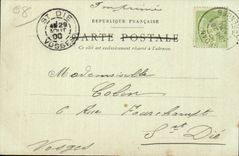 58
Imprimé
ST DIÉ
29
AOUT
00
VOSGES
RÉPUBLIQUE FRANÇAISE
CARTE POSTALE
Ce côté est exclusivement réservé à l'adresse.
Mademoiselle
Colin
6 Rue Fourchamps
St Dié
Vosges